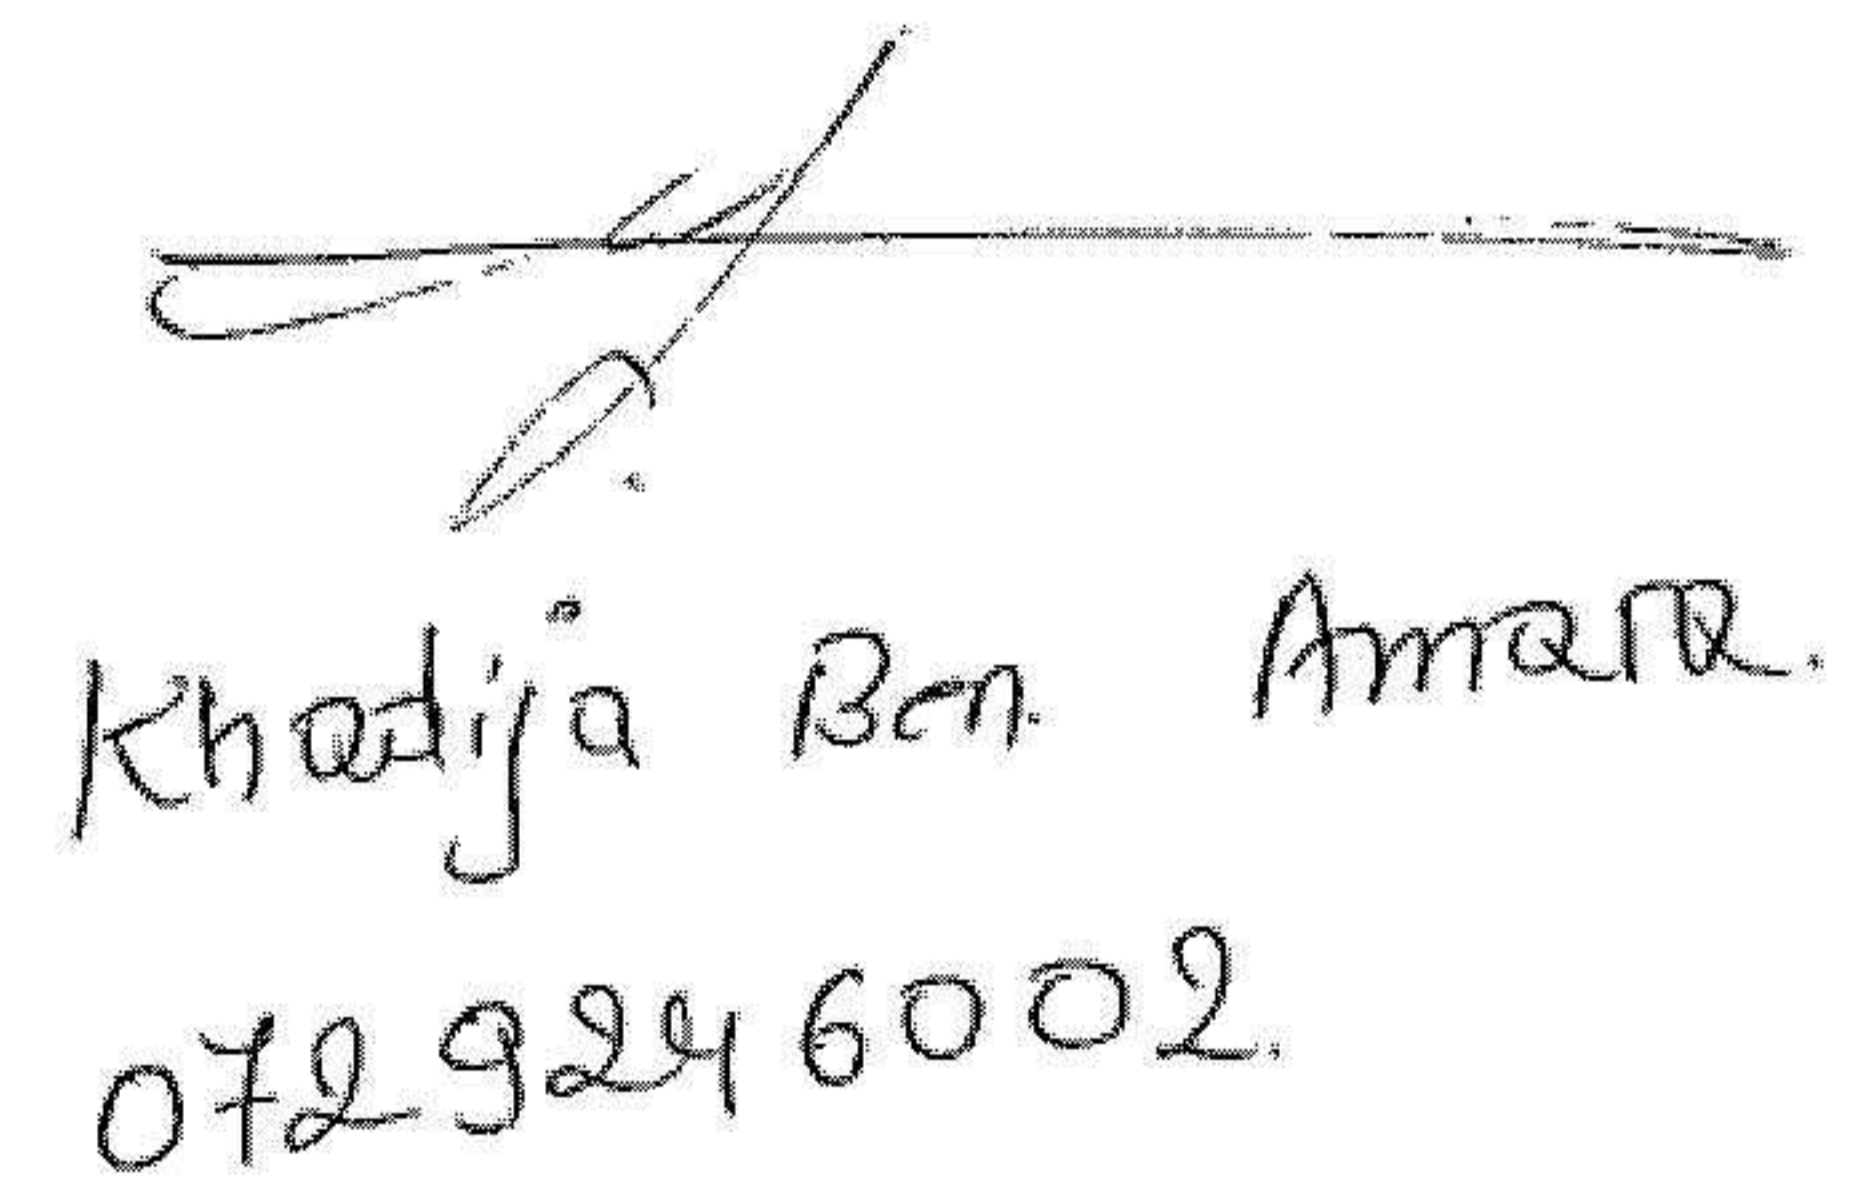 Khadija Ben. Amara.
0729246002.